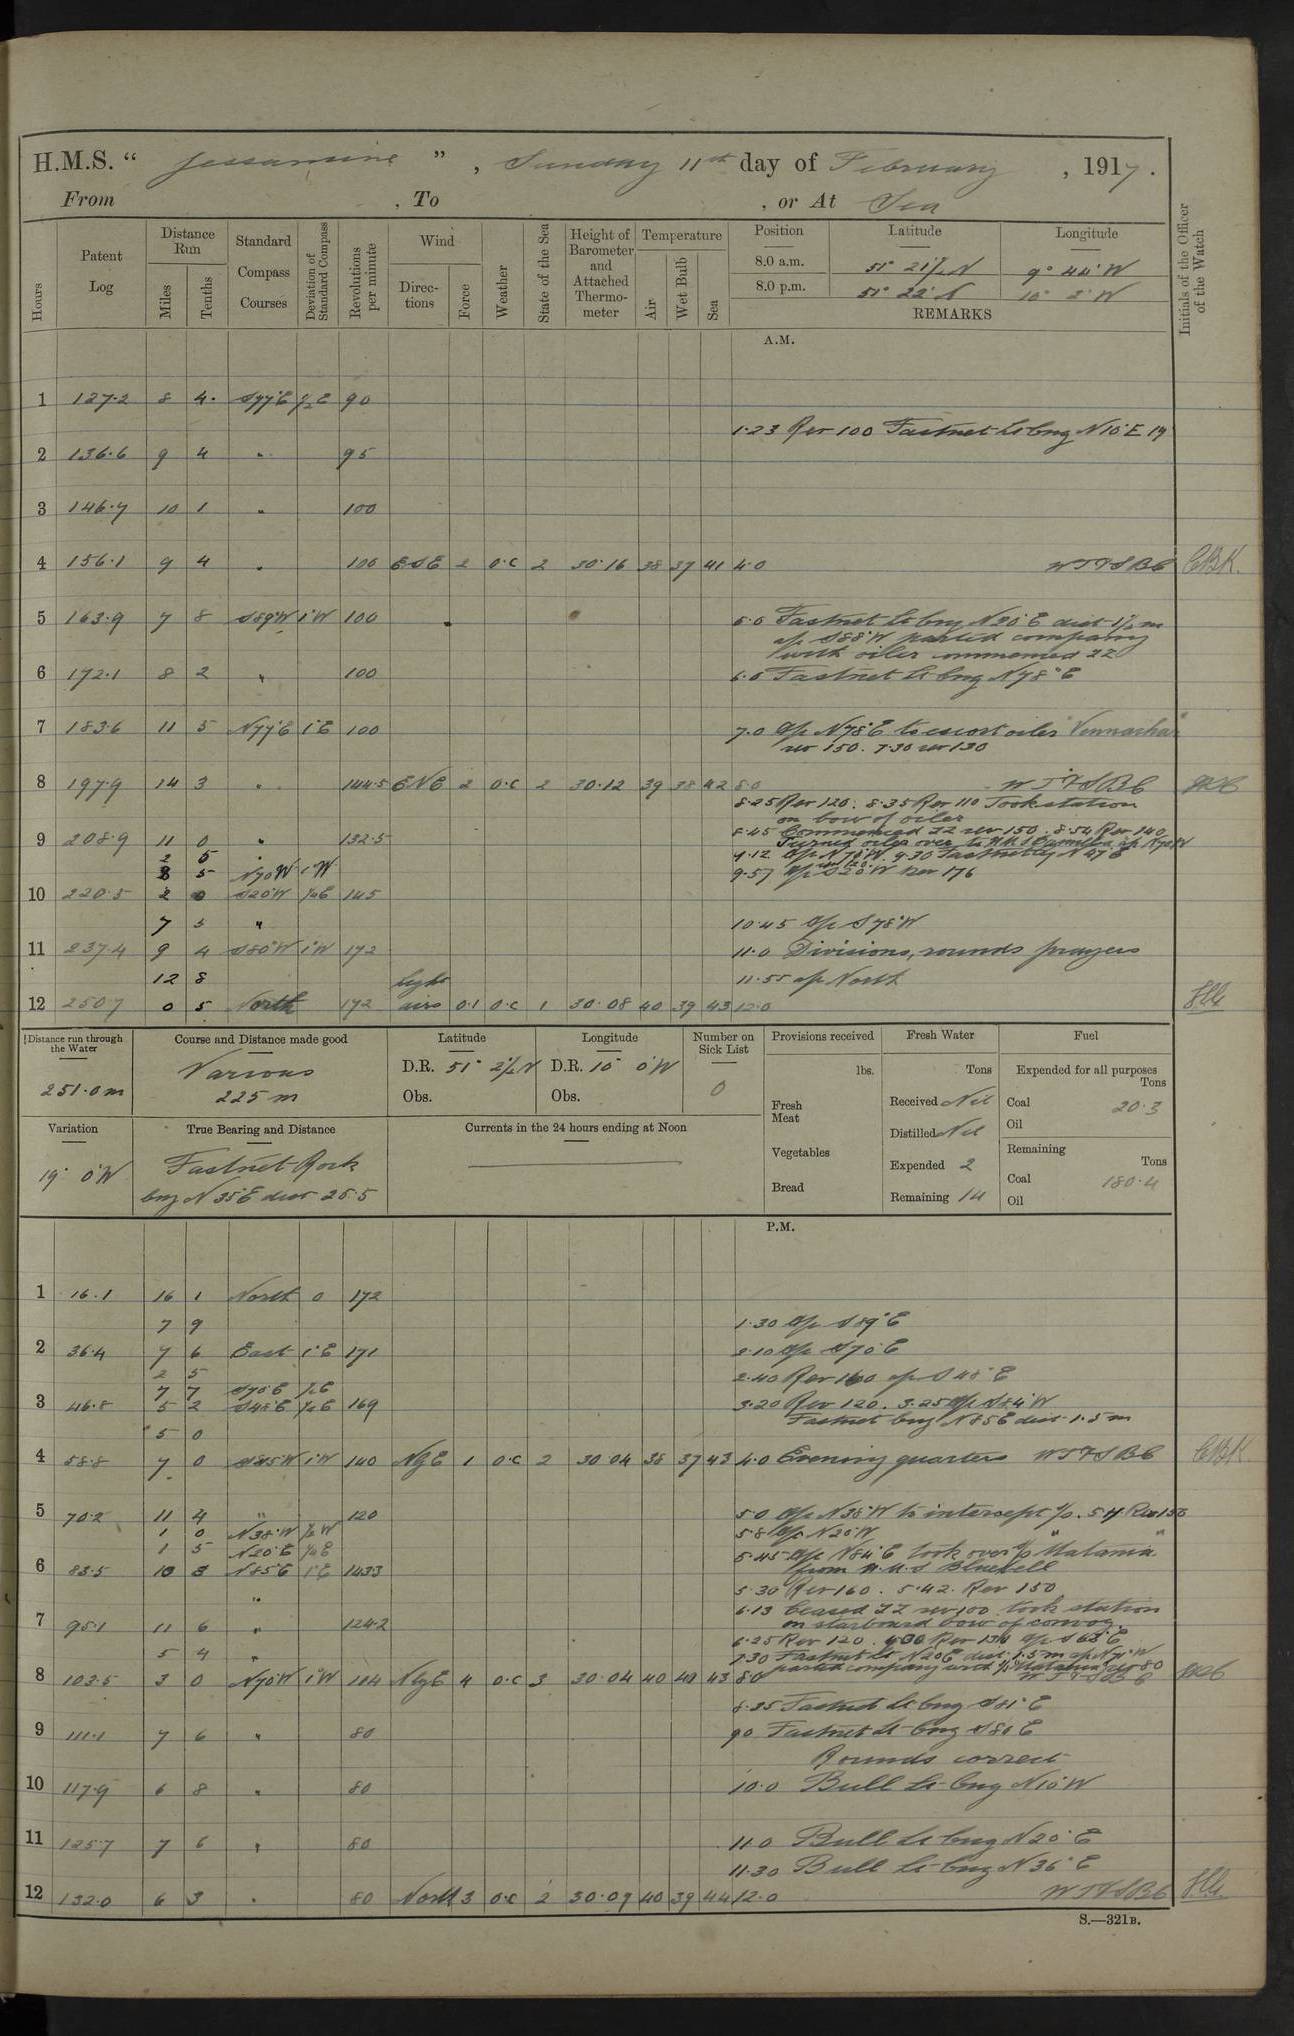 H.M.S. " Jessamine " , Sunday 11th day of February , 1917.
From , To , or At Sea
Hours
Patent Log
Distance Run
Miles
Tenths
Standard Compass Courses
Deviation of Standard Compass
Revolutions per minute
Wind
Directions
Force
Weather
State of the Sea
Height of Barometer and Attached Thermometer
Temperature
Air
Wet Bulb
Sea
Position Latitude Longitude
8.0 a.m. 51° 21½ N 9° 44' W
8.0 p.m. 51° 22' N 10° 2' W
REMARKS
Initials of the Officer of the Watch
A.M.
1 127.2 8 4 S77°E ½E 90
1.23 Rev 100 Fastnet Lt brng N10°E 19
2 136.6 9 4 " 95
3 146.7 10 1 " 100
4 156.1 9 4 " 100 ESE 2 o.c 2 30.16 38 37 41 4.0 WTFSBC CBK.
5 163.9 7 8 S89°W 1°W 100 5.0 Fastnet Lt brng N20°E dist 1½ m
a/c S88°W parted company
with oiler commenced ZZ
6 172.1 8 2 " 100 6.0 Fastnet Lt brng N78°E
7 183.6 11 5 N77°E 1°E 100 7.0 a/c N78°E to escort oiler "Vennachar"
rev 150. 7.30 rev 130
8 197.9 14 3 " 144.5 ENE 2 o.c 2 30.12 39 38 42 8.0 WTFSBC
8.25 Rev 120. 8.35 Rev 110 Took station
on bow of oiler
8.45 Commenced ZZ rev 150. 8.54 Rev 140
9 208.9 11 0 " 132.5 Turned oiler over to HMS Camellia a/c N70W
2 5 " 9.12 a/c N70°W. 9.30 Fastnet brg N27°E
8 5 N70W 1°W rev 120.
9.57 a/c S20°W Rev 176
10 220.5 2 0 S20°W ½E 145
7 5 " 10.45 a/c S78°W
11 237.4 9 4 S80°W 1°W 172 11.0 Divisions, rounds prayers
12 8 light 11.55 a/c North
12 250.7 0 5 North 172 airs 0.1 o.c 1 30.08 40 39 43 12.0
Distance run through the Water
251.0 m
Course and Distance made good
Various
225 m
Latitude
D.R. 51° 2½ N
Obs.
Longitude
D.R. 10° 0'W
Obs.
Number on Sick List
0
Provisions received
lbs.
Fresh Meat
Vegetables
Bread
Fresh Water
Tons
Received Nil
Distilled Nil
Expended 2
Remaining 14
Fuel
Expended for all purposes
Tons
Coal 20.3
Oil
Remaining
Tons
Coal 180.4
Oil
Variation
19° 0'W
True Bearing and Distance
Fastnet Rock
brng N 35°E dist 25.5
Currents in the 24 hours ending at Noon
P.M.
1 16.1 16 1 North 0 172
7 9 1.30 a/c S89°E
2 36.4 7 6 East 1°E 171 2.10 a/c S70°E
2 5 2.40 Rev 160 a/c S48°E
7 7 S70°E ½E
3 46.8 5 2 S48°E ½E 169 3.20 Rev 120. 3.25 a/c S84°W
Fastnet brng N85E dist 1.5 m
5 0
4 58.8 7 0 S85W 1°W 140 NEE 1 o.c 2 30.04 38 37 43 4.0 Evening quarters WTFSBC CBK.
5 70.2 11 4 " 120 5.0 a/c N38°W to intercept s/s.
1 0 N38°W ½W 5.8 a/c N20°W
1 5 N20°E ½E 5.45 a/c N84°E took over s/s "Matania"
6 83.5 10 3 N85°E 1°E 143.3 from H.M.S Bluebell
5.30 Rev 160. 5.42. Rev 150
6.13 Ceased ZZ rev 100 took station
7 95.1 11 6 " 124.2 on starboard bow of convoy.
6.25 Rev 120. a/c S68°E
5 4 " 7.30 Fastnet Lt N20E dist 1.5 m a/c N71°W
8 103.5 3 0 N70°W 1°W 104 NEE 4 o.c 3 30.04 40 40 43 8.0 parted company with s/s Matania rev 80
WTFSBC
8.35 Fastnet Lt brng S81°E
9 111.1 7 6 " 80 9.0 Fastnet Lt brng S80°E
Rounds correct
10 117.9 6 8 " 80 10.0 Bull Lt brng N10°W
11 125.7 7 6 " 80 11.0 Bull Lt brng N20°E
11.30 Bull Lt brng N36°E
12 132.0 6 3 " 80 North 3 o.c 2 30.07 40 39 44 12.0 WTFSBC
S.—321B.